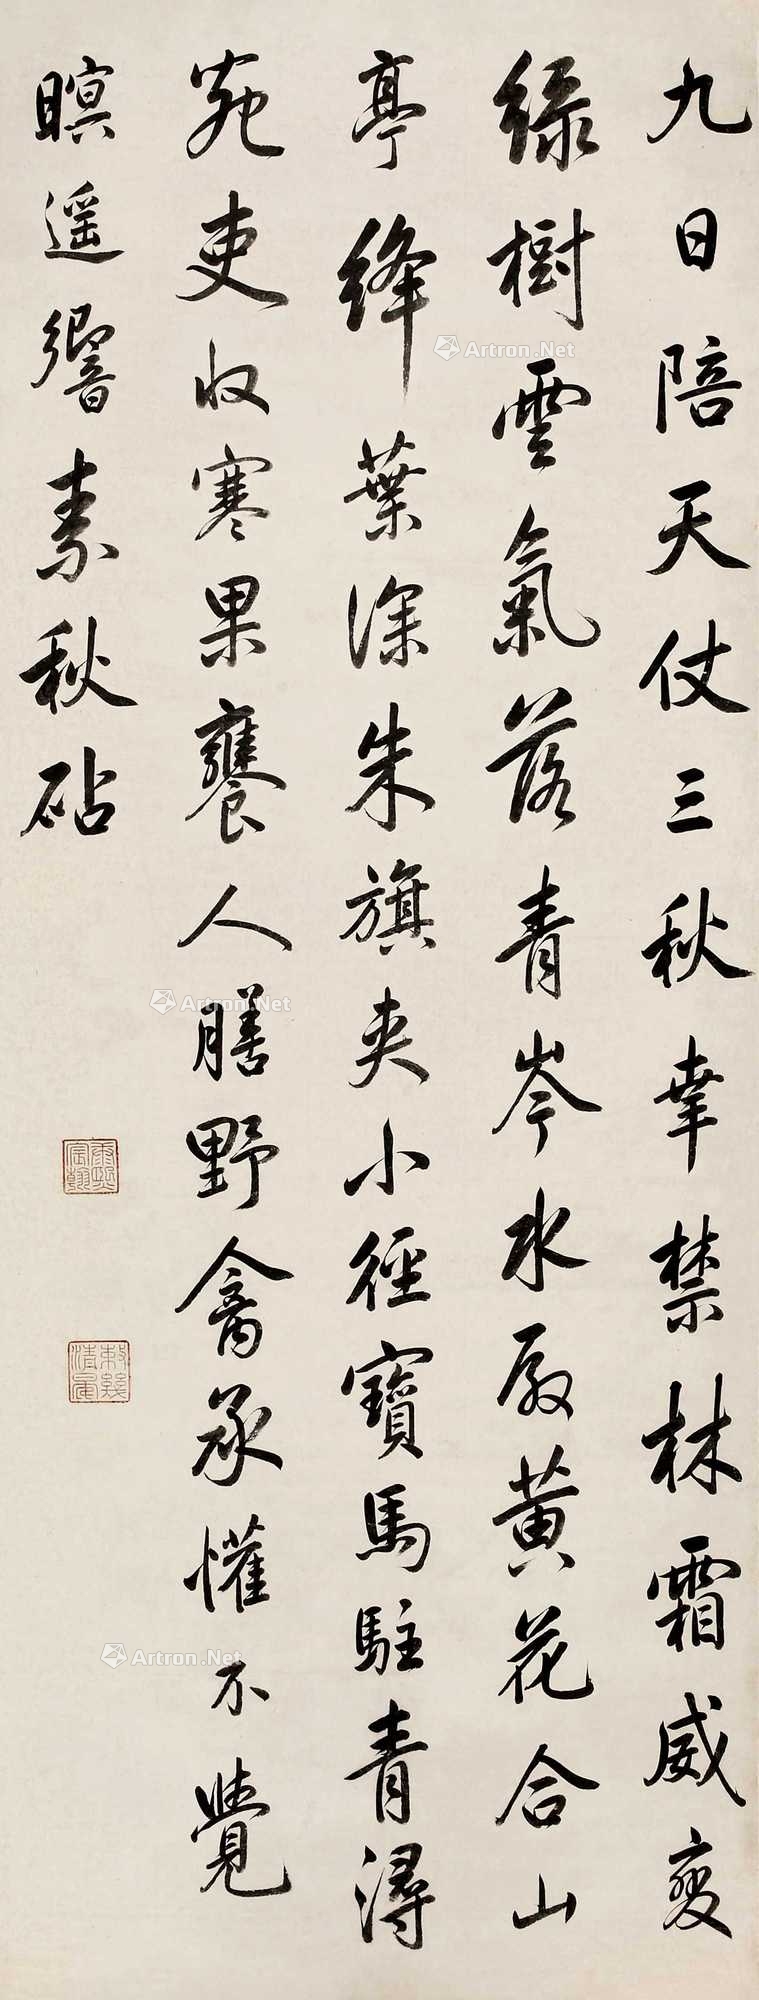 九日陪天仗三秋幸禁林霜威变
绿樹雲氣落青岑水殿黄花合山
亭绛葉深朱旗夹小徑寶馬駐青潯
苑吏收寒果饔人膳野禽承懽不覺
暝遥響素秋砧
康熙宸翰
敕幾清晏
Artron.Net
Artron.Net
Artron.Net